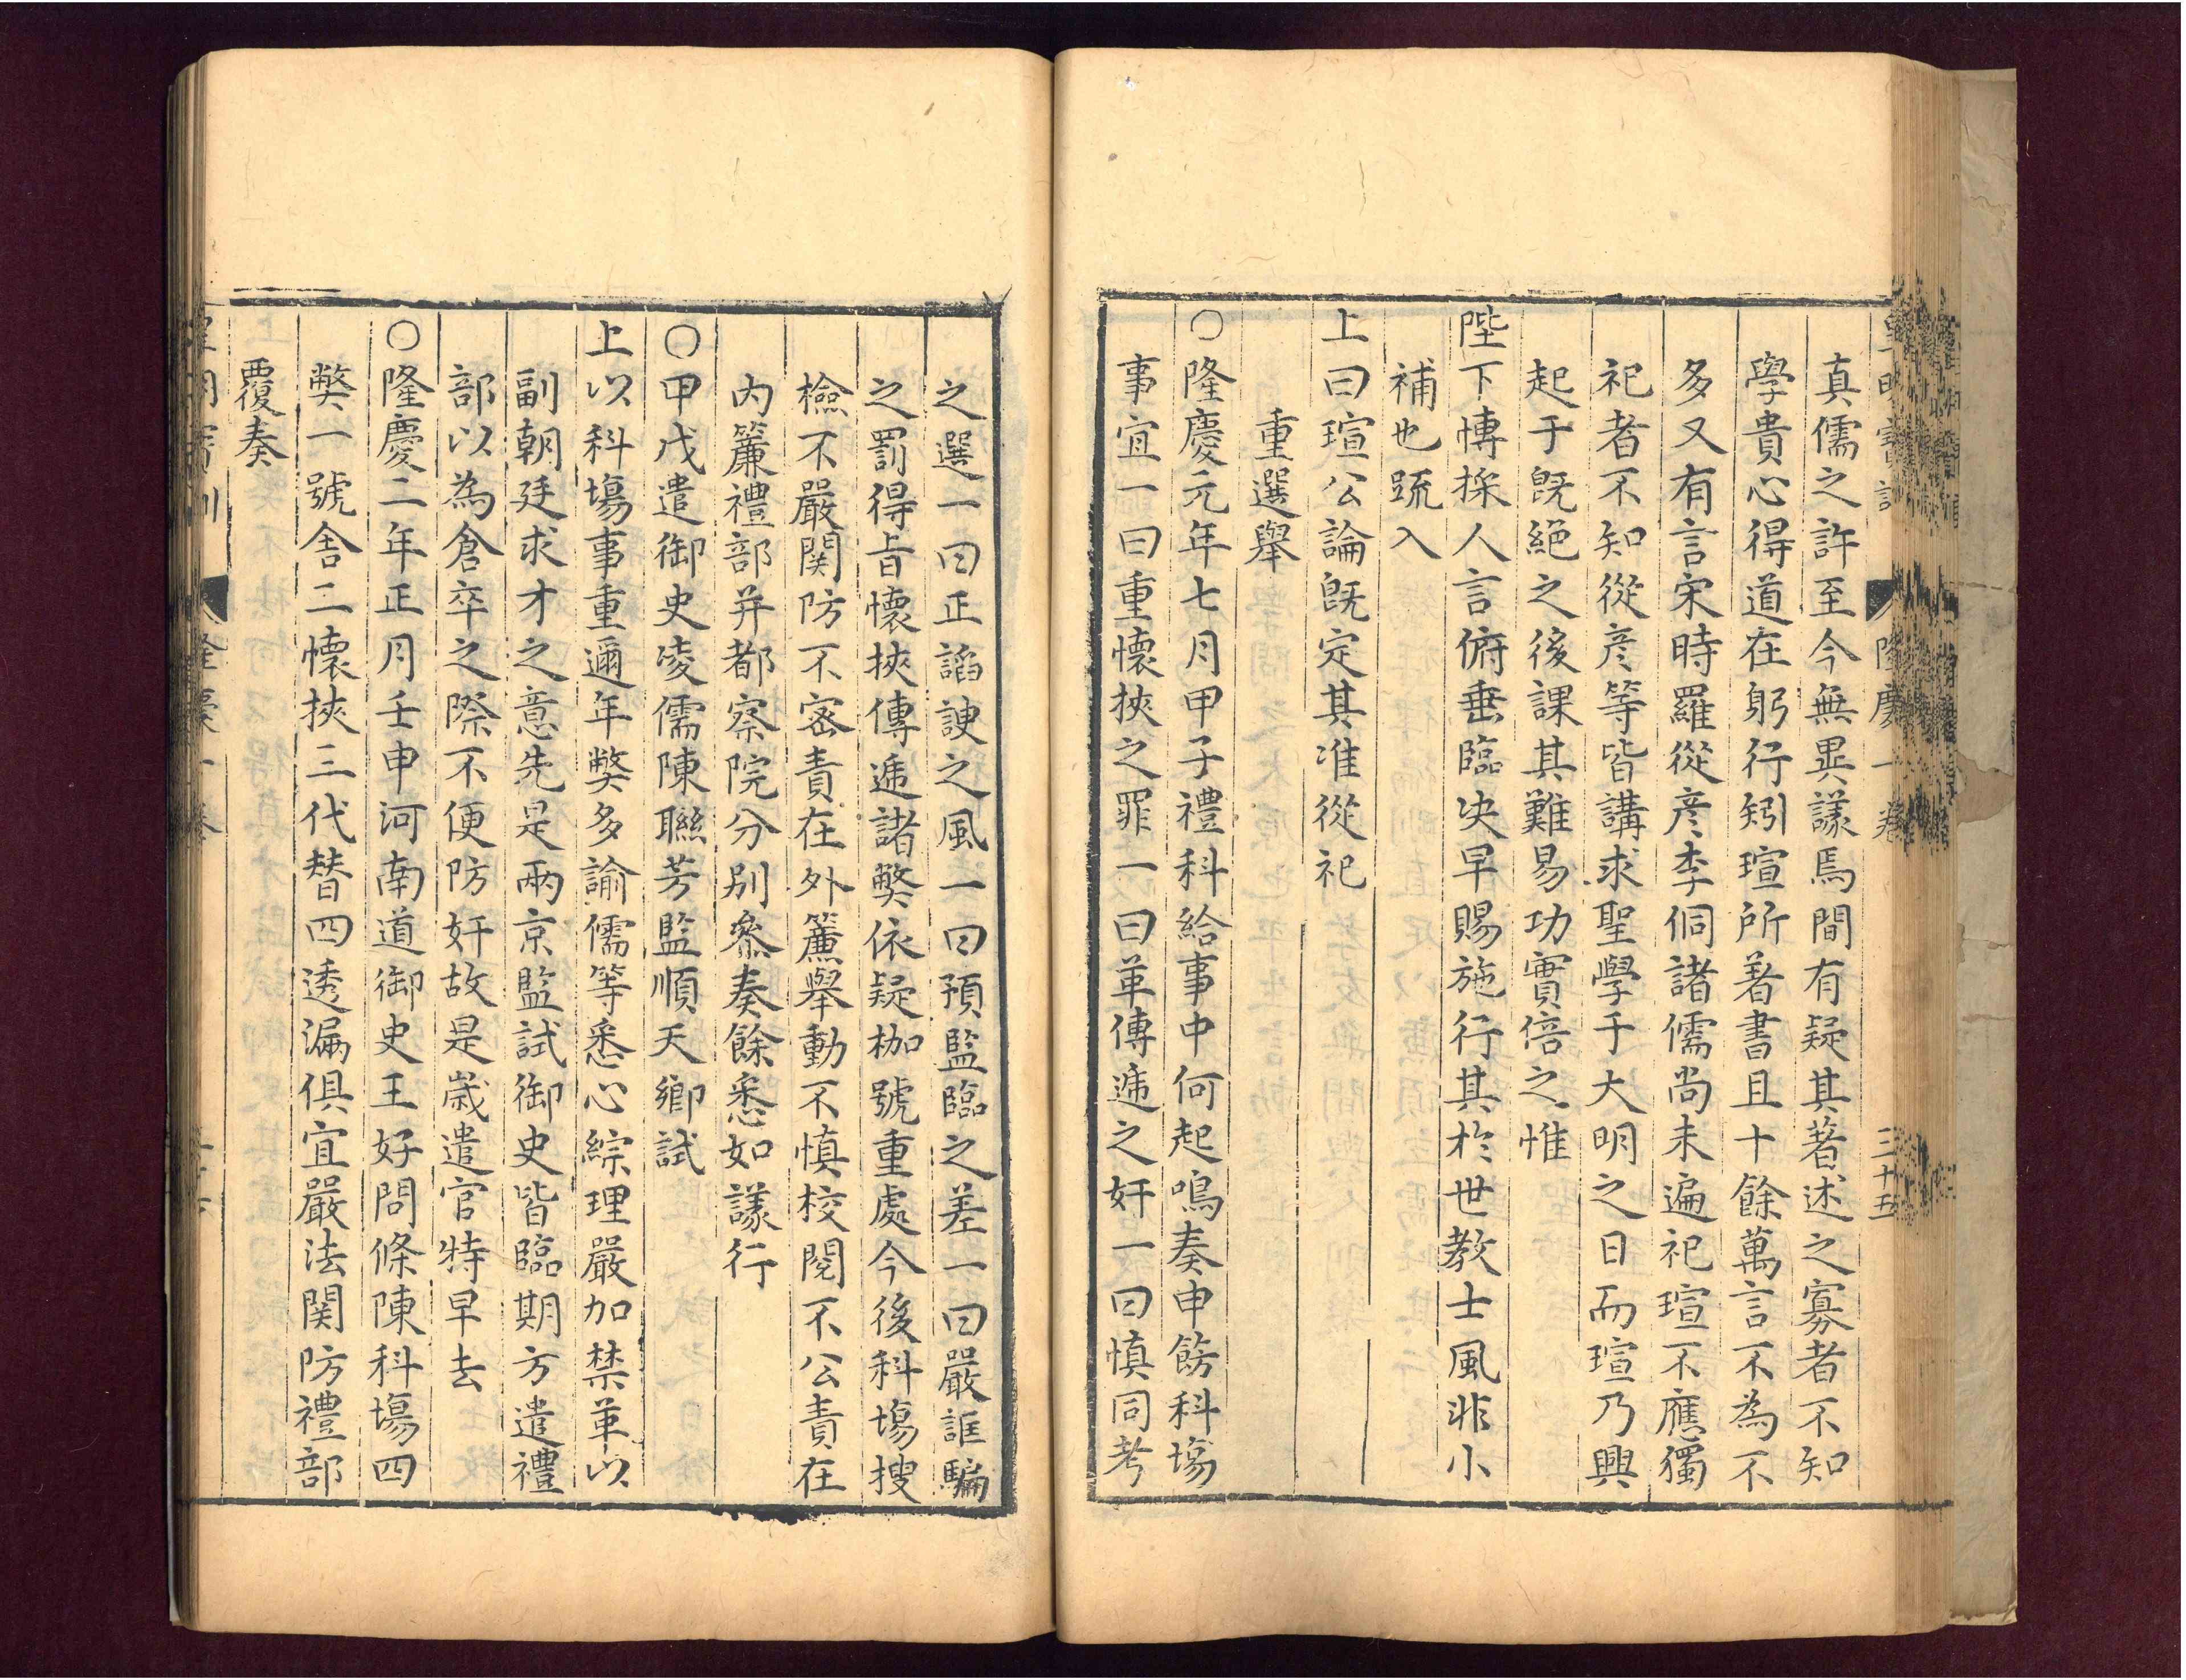 皇明寶訓 隆慶一卷 三十五
真儒之許至今無異議焉間有疑其著述之寡者不知
學貴心得道在躬行矧瑄所著書且十餘萬言不為不
多又有言宋時羅從彥李侗諸儒尚未遍祀瑄不應獨
祀者不知從彥等皆講求聖學于大明之日而瑄乃興
起于旣絕之後課其難易功實倍之惟
陛下博採人言俯垂臨决早賜施行其於世教士風非小
補也疏入
上曰瑄公論旣定其准從祀
重選舉
○隆慶元年七月甲子禮科給事中何起鳴奏申飭科塲
事宜一曰重懷挾之罪一曰革傳遞之奸一曰慎同考
之選一曰正謟諛之風一曰預監臨之差一曰嚴誆騙
之罰得旨懷挾傳遞諸弊依疑枷號重處今後科塲搜
檢不嚴関防不密責在外簾舉動不慎校閱不公責在
內簾禮部并都察院分別叅奏餘悉如議行
○甲戌遣御史凌儒陳聯芳監順天鄉試
上以科塲事重邇年弊多諭儒等悉心綜理嚴加禁革以
副朝廷求才之意先是兩京監試御史皆臨期方遣禮
部以為倉卒之際不便防奸故是歲遣官特早去
○隆慶二年正月壬申河南道御史王好問條陳科塲四
弊一號舍二懷挾三代替四透漏俱宜嚴法関防禮部
覆奏